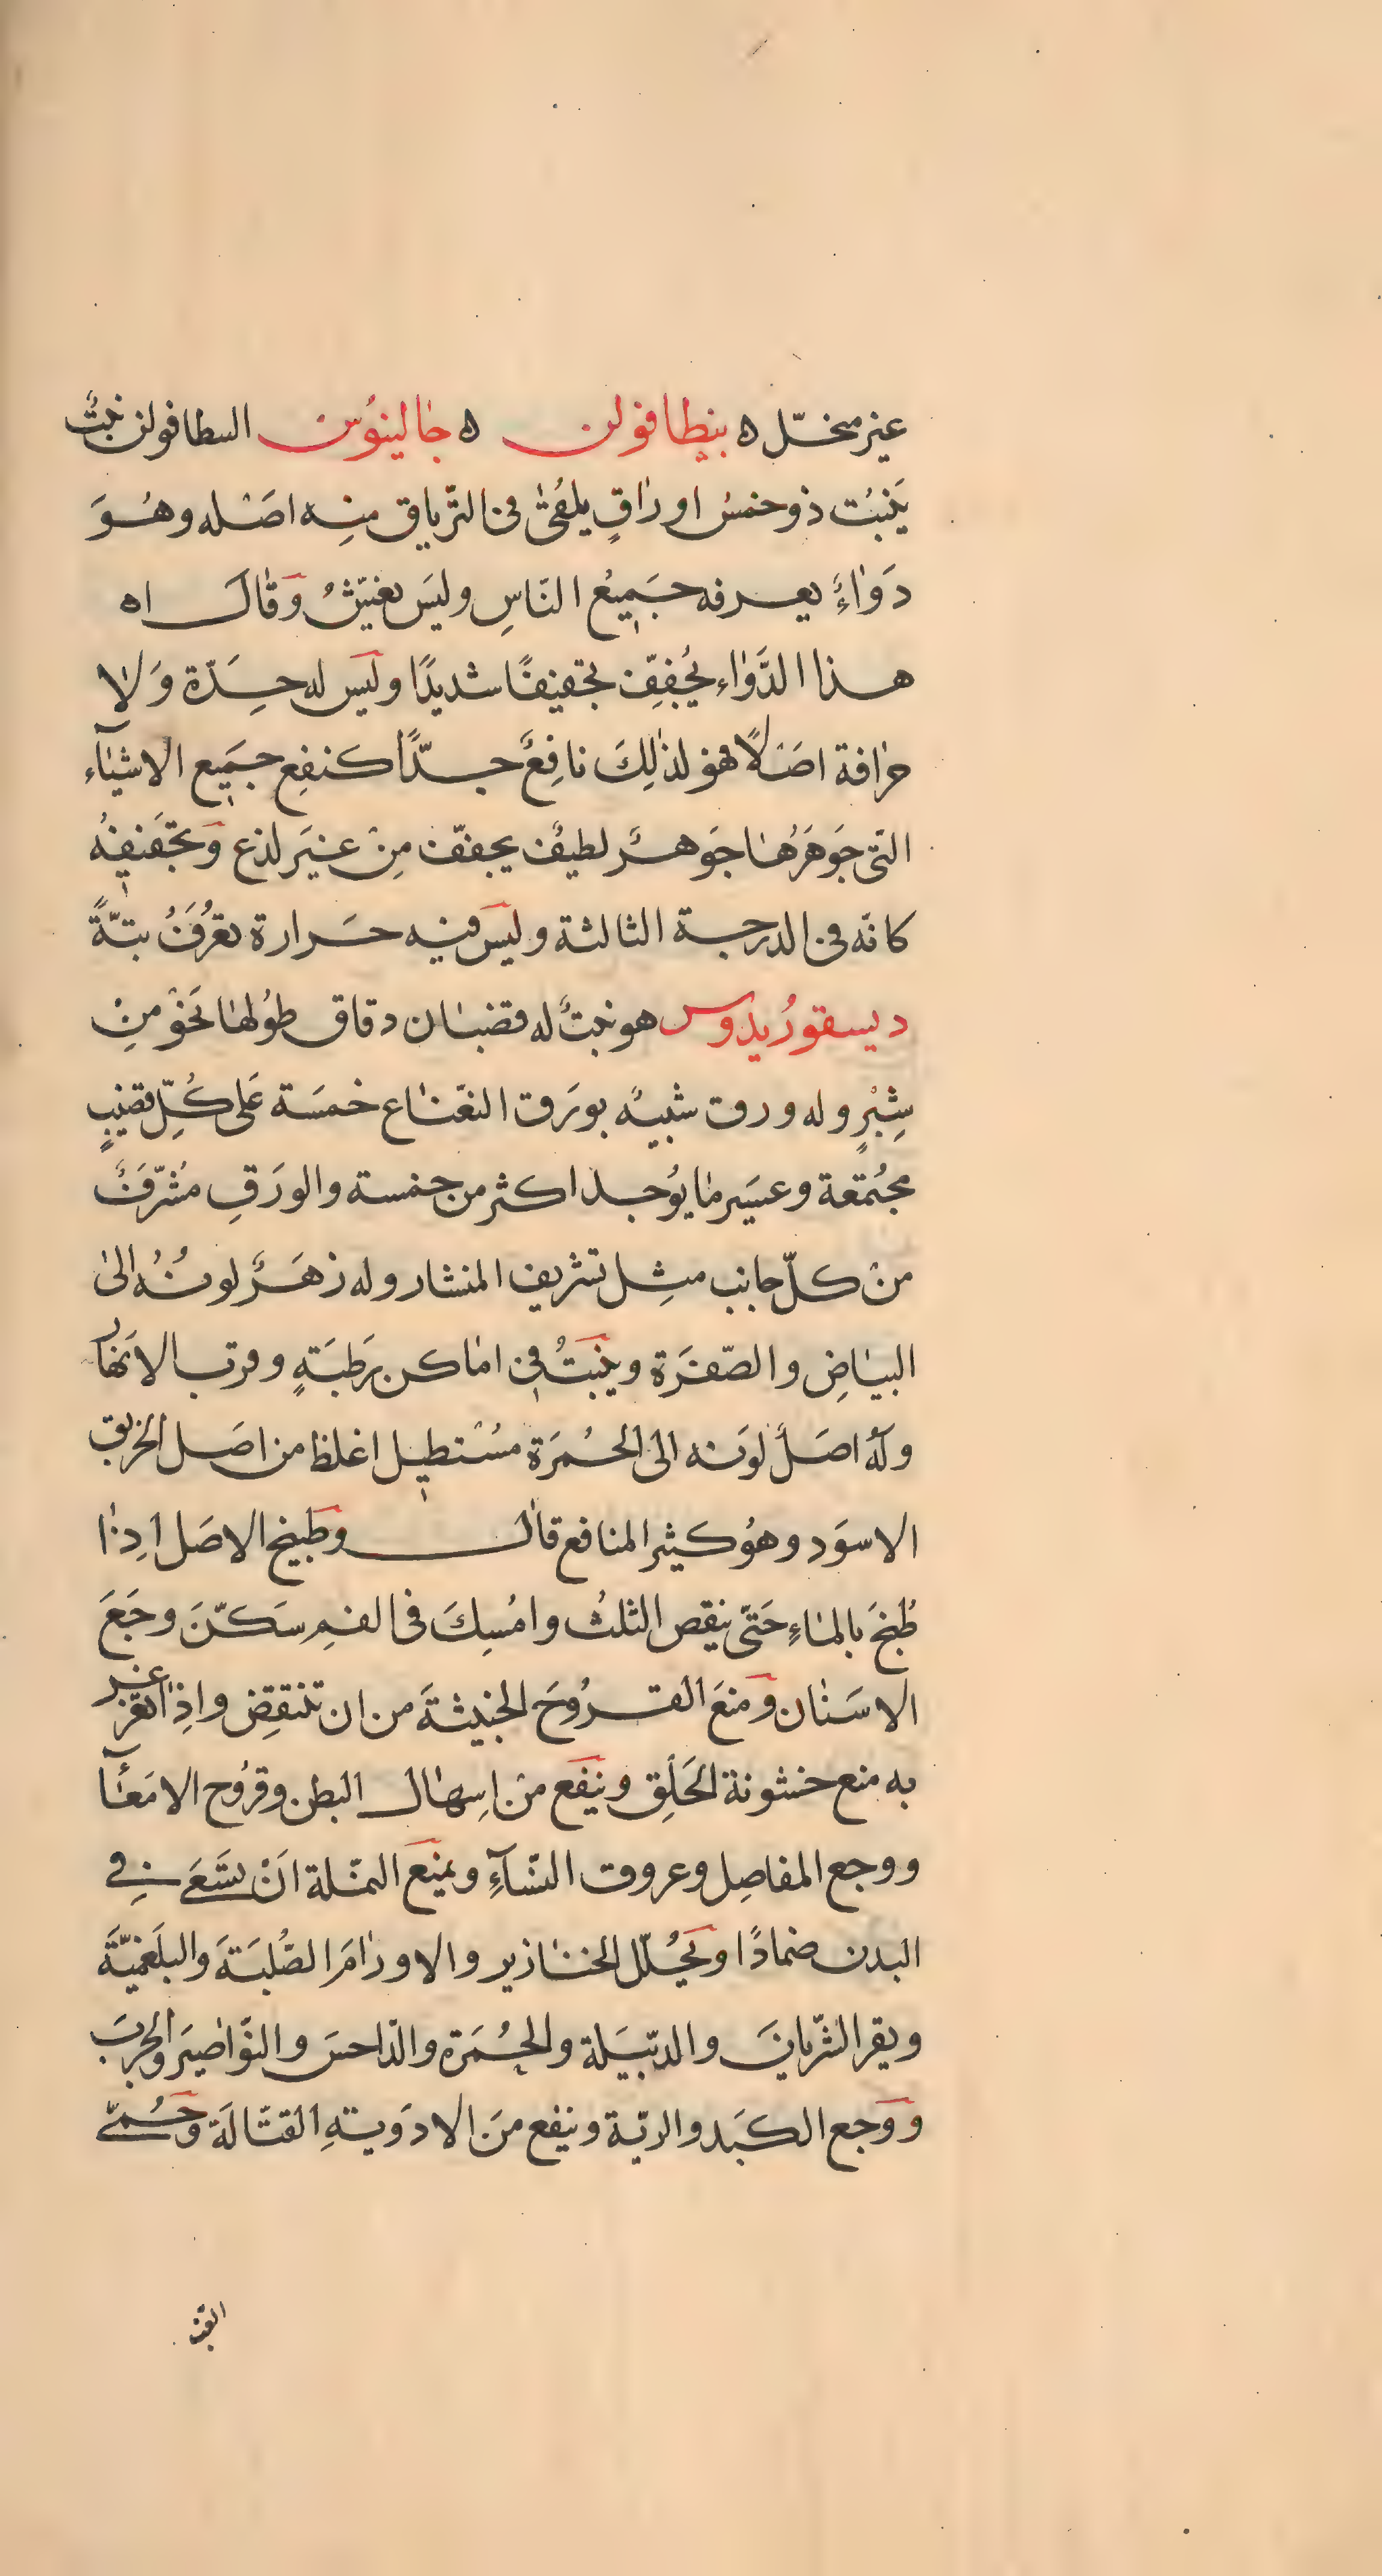 غير منخّل ه بنطافولن ه جالينوُس البنطافولن نبتٌ
يَنبُت ذو خمسُ اوراقٍ يلقىٰ في الترّياق منِه اصَله وهُوَ
دَوٰاءٌ يعرفه جَميعُ النّاسِ وليَس وَقٰالَ اه
هذا الدَّوٰاء يُجُفِفّ تجفيفًا شديدًا وليَس له حِدَّة وَلٰا
حرٰافة اصَلًا فهو لذٰلِكَ نافِعٌ جدًّا كنفِع جَميع الاشيٰآء
التّي جَوهَرهُا جَوهرٌ لطيفٌ يجففّ مِنْ غيَر لذع وَتجَفيفهُ
كانّه في الدرجة الثالثة وليَس فيه حَرارة تعُرَفُ بتةًّ
ديسقورُيدوس هو نبتٌ له قضبٰان دقاق طوُلهٰا نَحوْ مِنْ
شِبْرٍ وله ورق شبيهُ بورَق النعّنٰاع خمسَة عَلى كُلِّ قضيبٍ
مجُتمعة وعسَير مٰا يوُجد اكثر من خمسة والورَقِ مُشرّفٌ
منْ كلّ جانب مثِل تشريف المنشار وله زهَرٌ لونُهُ الىٰ
البيٰاضِ والصّفرَة وينبَتُ في امٰاكن رَطبَةٍ وقرب الانَهٰار
ولَهُ اصَلٌ لوَنه الى الحُمرَة مسُتطيل اغلظ من اصَل الخربق
الاسوَد وهوُ كثير المنافع قٰال وطَبيخ الاصَل اذِٰا
طُبخَ بالمٰاءِ حَتىّ ينقص الثلثُ وامُسِكَ في الفمِ سَكّنَ وجَعَ
الاسَنٰان وَمنعَ القرُوحَ الخبيثةَ من ان واذِٰا تغرغر
به منع خشونة الحَلقِ وينَفَع منْ اسِهٰال البطن وقروُح الامَعٰآء
ووجع المفاصِل وعروق النسّآءِ ويمنعَ النمّلة انَْ تسَعَى في
البدن ضمادًا ويَحُللّ الخنٰازير والاورٰامَ الصُّلبَةَ والبلَغميّةَ
ويقر الشّريانَ والدبّيَلة والحُمَرة والدّاحسَ والنوّاصيَر والجرَبَ
وَوجع الكبَد والريّة وينفع منَ الادوَيةِ القتّالَة وَحُمىّ